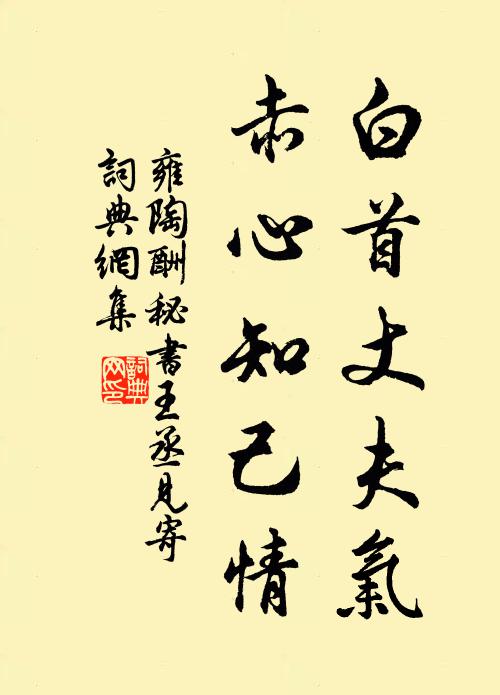 白首丈夫氣
赤心知己情
雍陶酬秘書王丞見寄
詞典網集
詞典網印